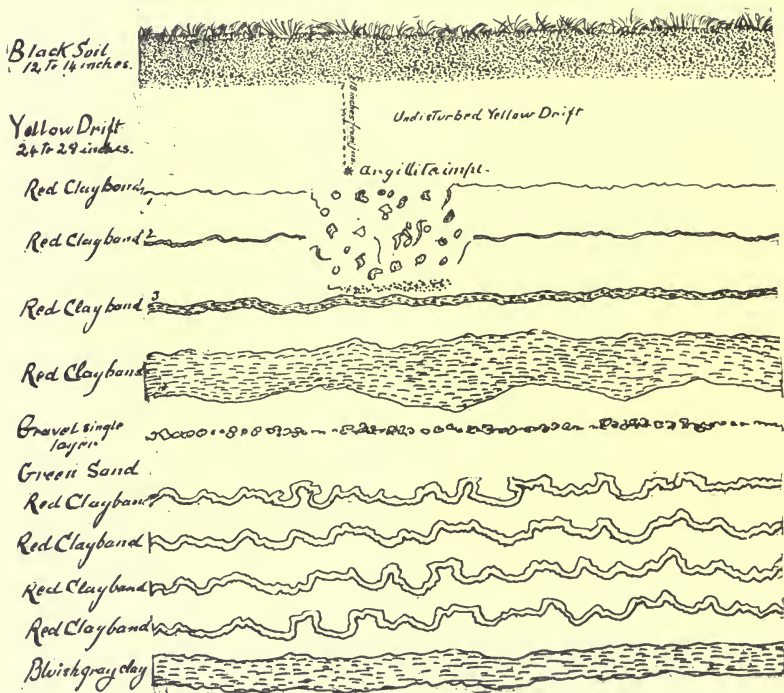 Black Soil
12 to 14 inches.
Undisturbed Yellow Drift
Yellow Drift
24 to 28 inches.
18 inches from
argillite impl.
Red Clayband
1
Red Clayband 2
Red Clayband 3
Red Clayband
Gravel single
layer
Green Sand
Red Clayband
Red Clayband
Red Clayband
Red Clayband
Bluish gray clay